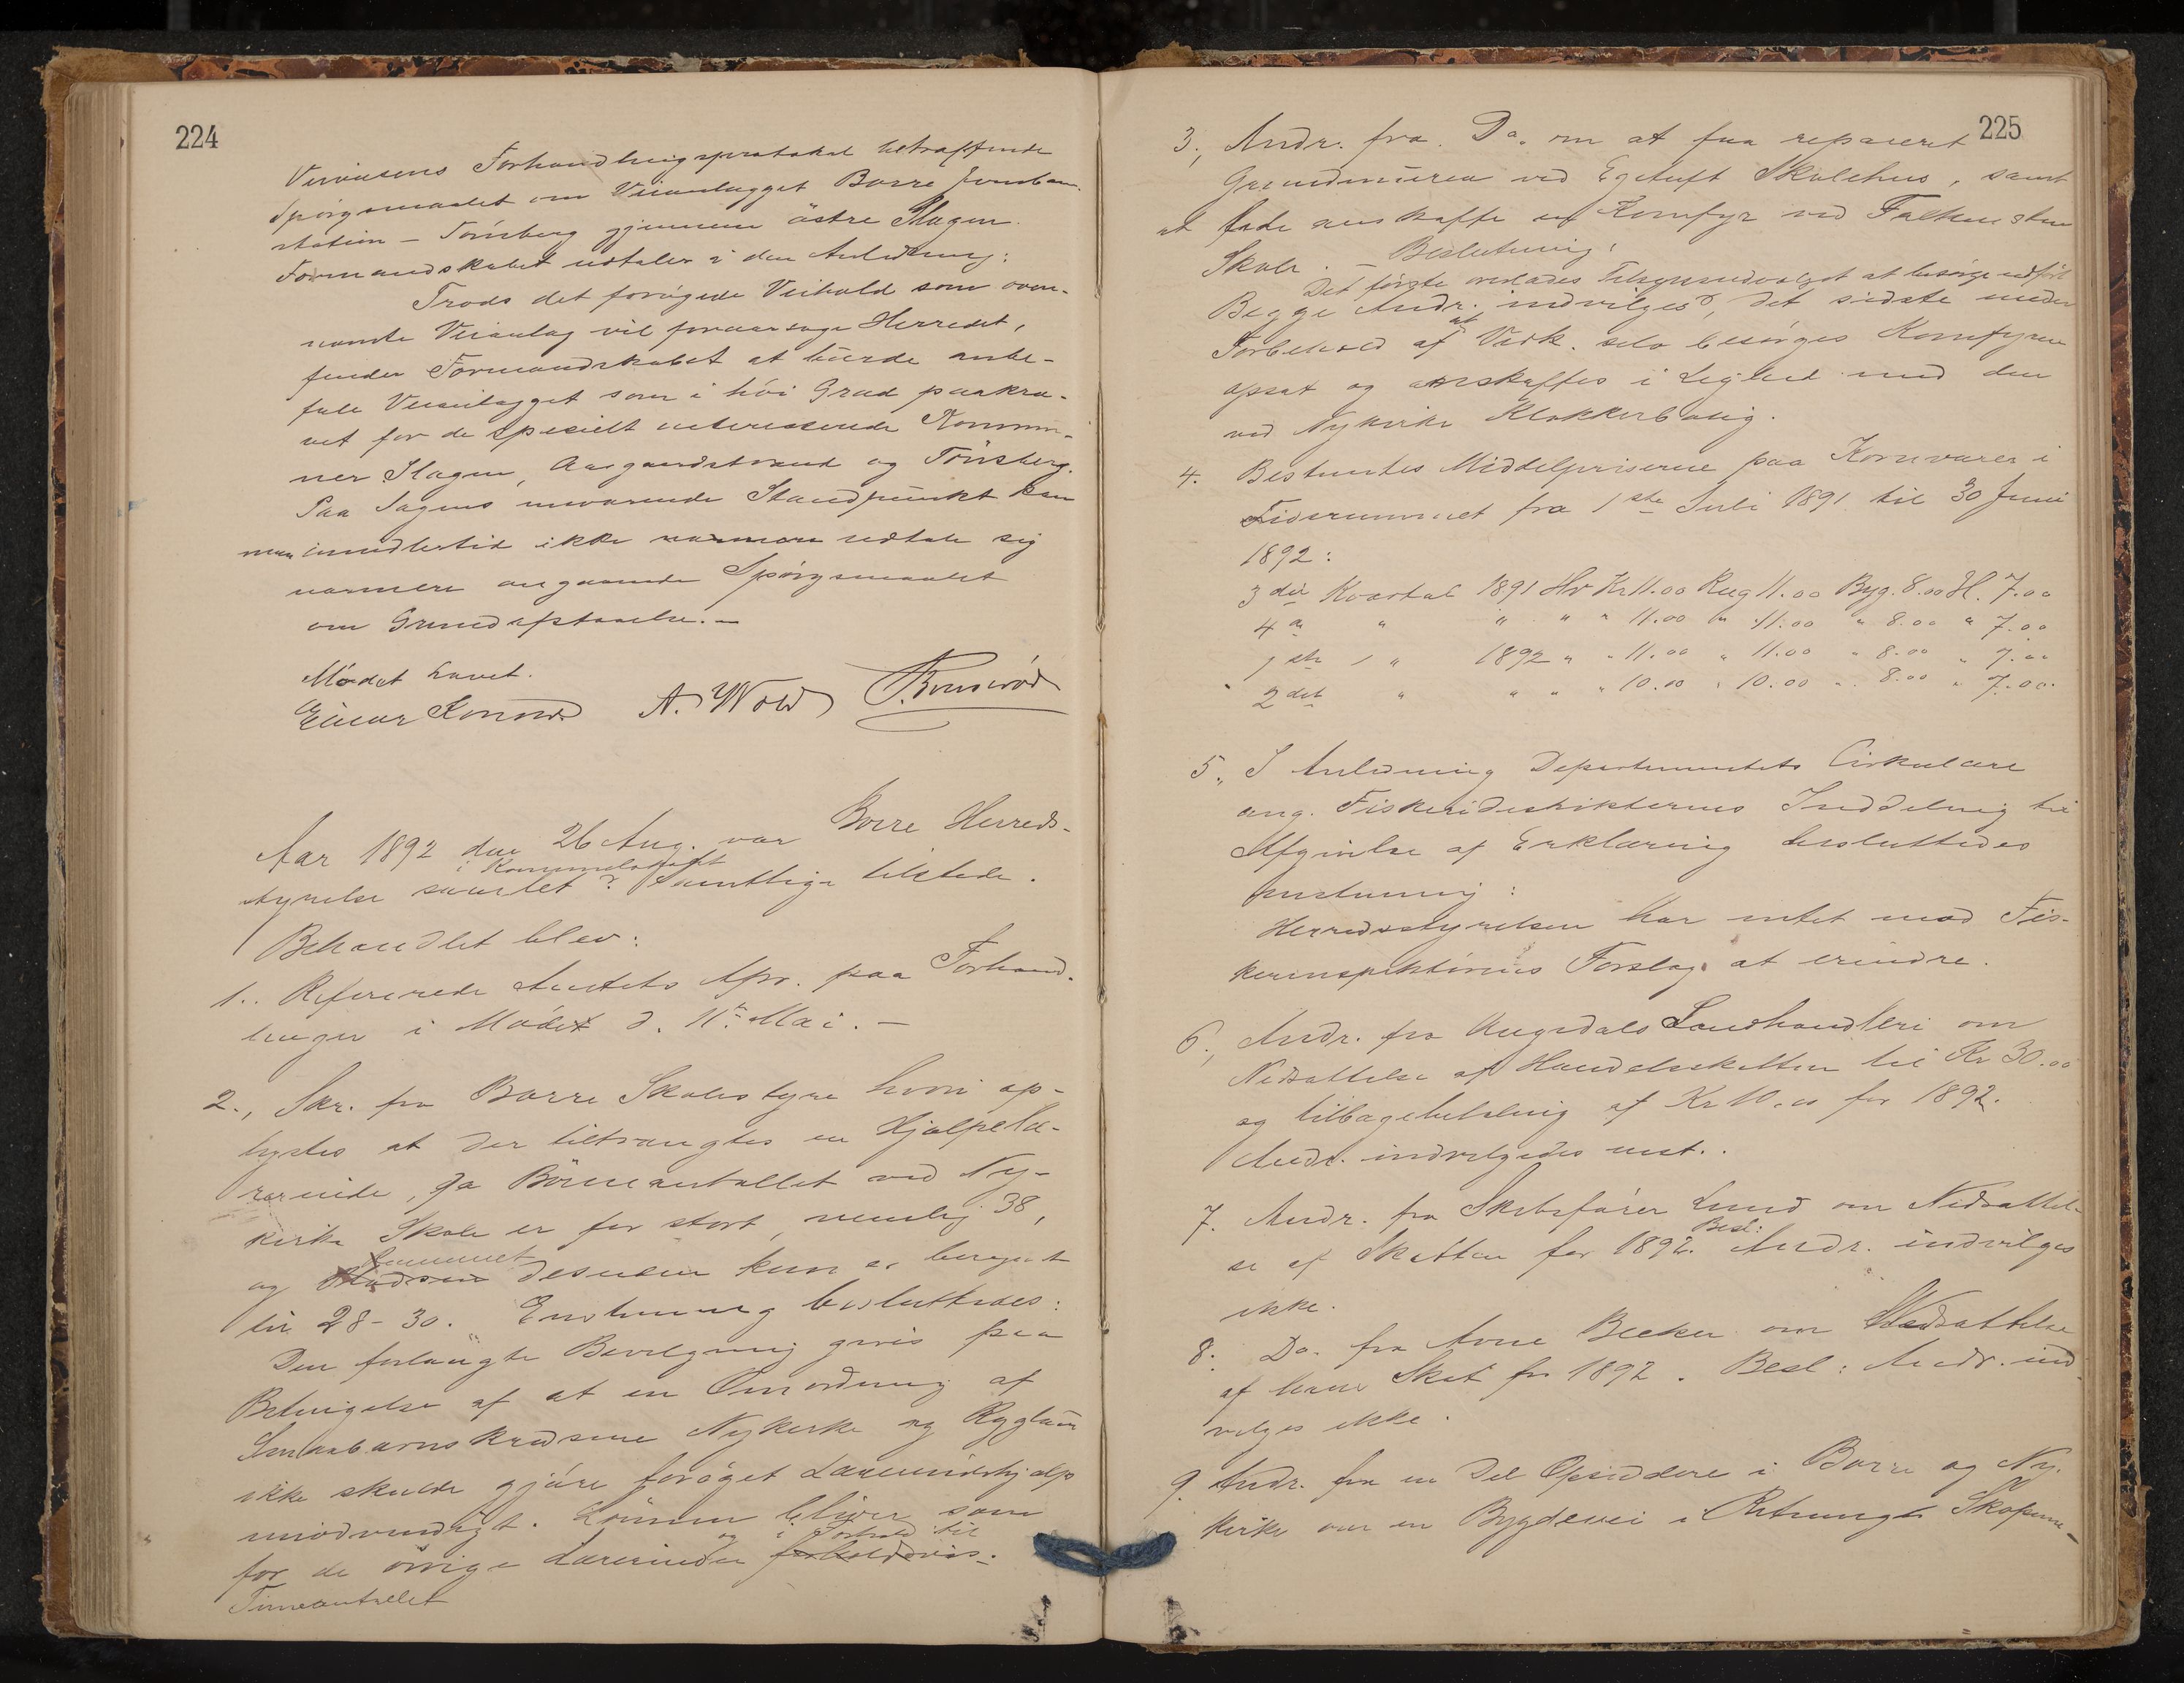 224
Veivæsens Forhandlingsprotokol betræffende
Spørgsmaalet om Veianlægget Borre Jernban-
station – Tønsberg gjennem østre Slagen.
Formandskabet udtaler i den Anledning:
Trods det forøgede Veihold som oven-
nævnte Veianlæg vil foraarsage Herredet,
finder Formandskabet at burde anbe-
fale Veianlægget som i høi Grad paakræ-
vet for de specielt interesserede Kommu-
ner Slagen, Aasgaardstrand og Tönsberg.
Paa Sagens nuværende Standpunkt kan
man imidlertid ikke nærmere udtale sig
nærmere angaaende Spørgsmaalet
om Grundafstaaelse. –
Mødet hævet.
Einar A. Wold
Aar 1892 den 26 Aug. var Borre Herreds-
i Kommunelokalet
styrelse samlet. Samtlige tilstede.
Behandlet blev:
1.. Refererede Amtets Apr. paa Forhand-
linger i Mödet d. 11te Mai. –
2., Skr. fra Borre Skolestyre hvori op-
lystes at der tiltrængtes en Hjælpelæ-
rerinde, da Börneantallet ved Ny-
kirke Skole er for stort, nemlig 38,
Rummet
og desuden kun er beregnet
til 28-30. Enstemmig besluttedes:
Den forlangte Bevilgning gives paa
Betingelse af at en Omordning af
Smaabarnskredsene Nykirke og
ikke skulde gjøre forøget Lærerindehjælp
unødvendigt. Lønnen bliver som
og i Forhold til
for de övrige Lærerinder forholdsvis.
Timeantallet
225
3., Andr. fra Do. om at faa repareret
Grundmuren ved Egetuft Skolehus, samt
at lade anskaffe en Komfyr ved Falkensten
Skole. – Beslutning:
Det første overlades Tilsynsudvalget at besørge udført
Begge Andr. indvilges, det sidste under
at
Forbehold af Vedk. selv besørges Komfyren
opsat og anskaffes i Lighed med den
ved Nykirke Klokkerbolig.
4. Bestemtes Middelpriserne paa Kornvarer i
Tidsrummet fra 1ste Juli 1891 til 30 Juni
1892:
3die Kvartal 1891 Hv Kr 11.00 Rug 11.00 Byg. 8.00 H. 7.00
4de " " " " 11.00 " 11.00 " 8.00 " 7.00
1ste " 1892 " " 11.00 " 11.00 " 8.00 " 7.00
2det " " " " 10.00 " 10.00 " 8.00 " 7.00.
5., I Anledning Departementets Cirkulære
ang. Fiskeridistrikternes Inddeling til
Afgivelse af Erklæring besluttedes
enstemmig:
Herredsstyrelsen har intet mod Fis-
keriinspektörens Forslag at erindre.
6., Andr. fra Augedals Landhandleri om
Nedsættelse af Handelsskatten til Kr 30.00
og tilbagebetaling af Kr 10.00 for 1892.
Andr. indvilgedes enst..
7. Andr. fra Skibsfører Lund om Nedsættel-
Besl:
se af Skatten for 1892. Andr. indvilges
ikke.
8. Do. fra Arne Becker om Nedsættelse
af hans Skat for 1892. Besl: Andr. ind-
vilges ikke.
9. Andr. fra en Del Opsiddere i Borre og Ny-
kirke om en Bygdevei i Retning Skopum-